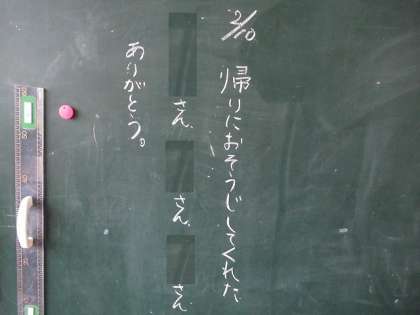 2/10
帰りにおそうじしてくれた
さん
さん
さん
ありがとう。